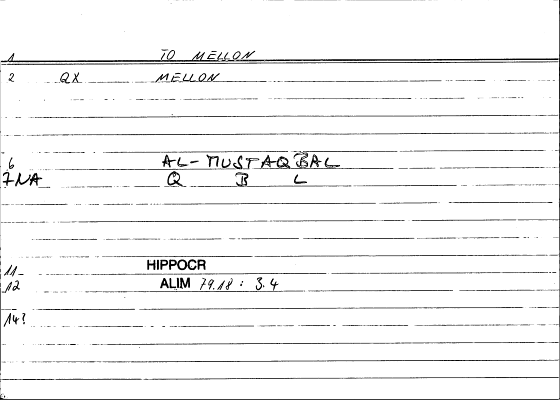 1 TO MELLON
2 QX MELLON
6 AL-MUSTAQBAL
7NA Q B L
11 HIPPOCR
12 ALIM 79.18 : 3.4
14?